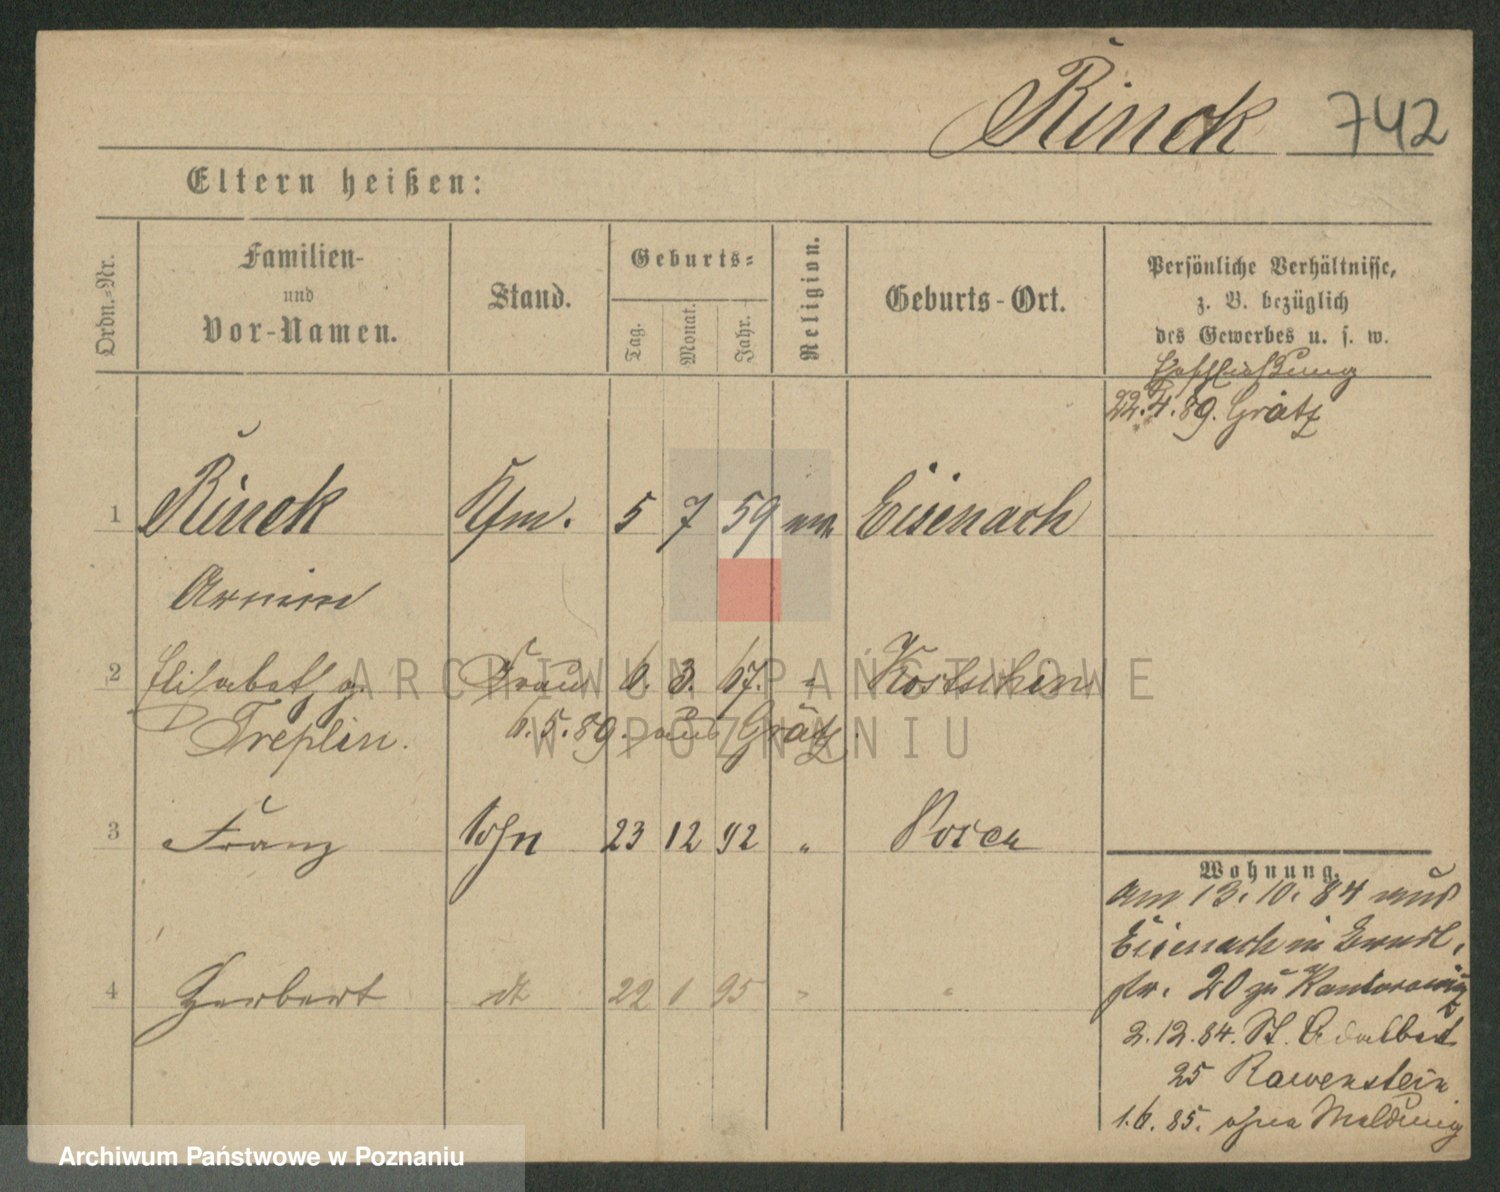 Rinck 742
Eltern heißen:
Ordn.-Nr.
Familien-
und
Vor-Namen.
Stand.
Geburts-
Tag.
Monat.
Jahr.
Religion.
Geburts-Ort.
Persönliche Verhältnisse,
z. B. bezüglich
des Gewerbes u. s. w.
Eheschließung
22.4.89. Grätz
1 Rinck Kfm. 5 7 59 Eisenach
Armin
2 Elisabeth g. Frau 6. 3. 67. " Kostschin
Treplin.
6.5.89. aus Grätz.
3 Franz Sohn 23 12 92 " Posen
4 Herbert dt 22 6 95 " "
Wohnung.
am 13.10.84 aus
Eisenach in
str. 20 zu Kantorowicz
2.12.84. St. Adalbert
25 Rawenstein
1.6.85. ohne Meldung
ARCHIWUM PAŃSTWOWE
W POZNANIU
Archiwum Państwowe w Poznaniu